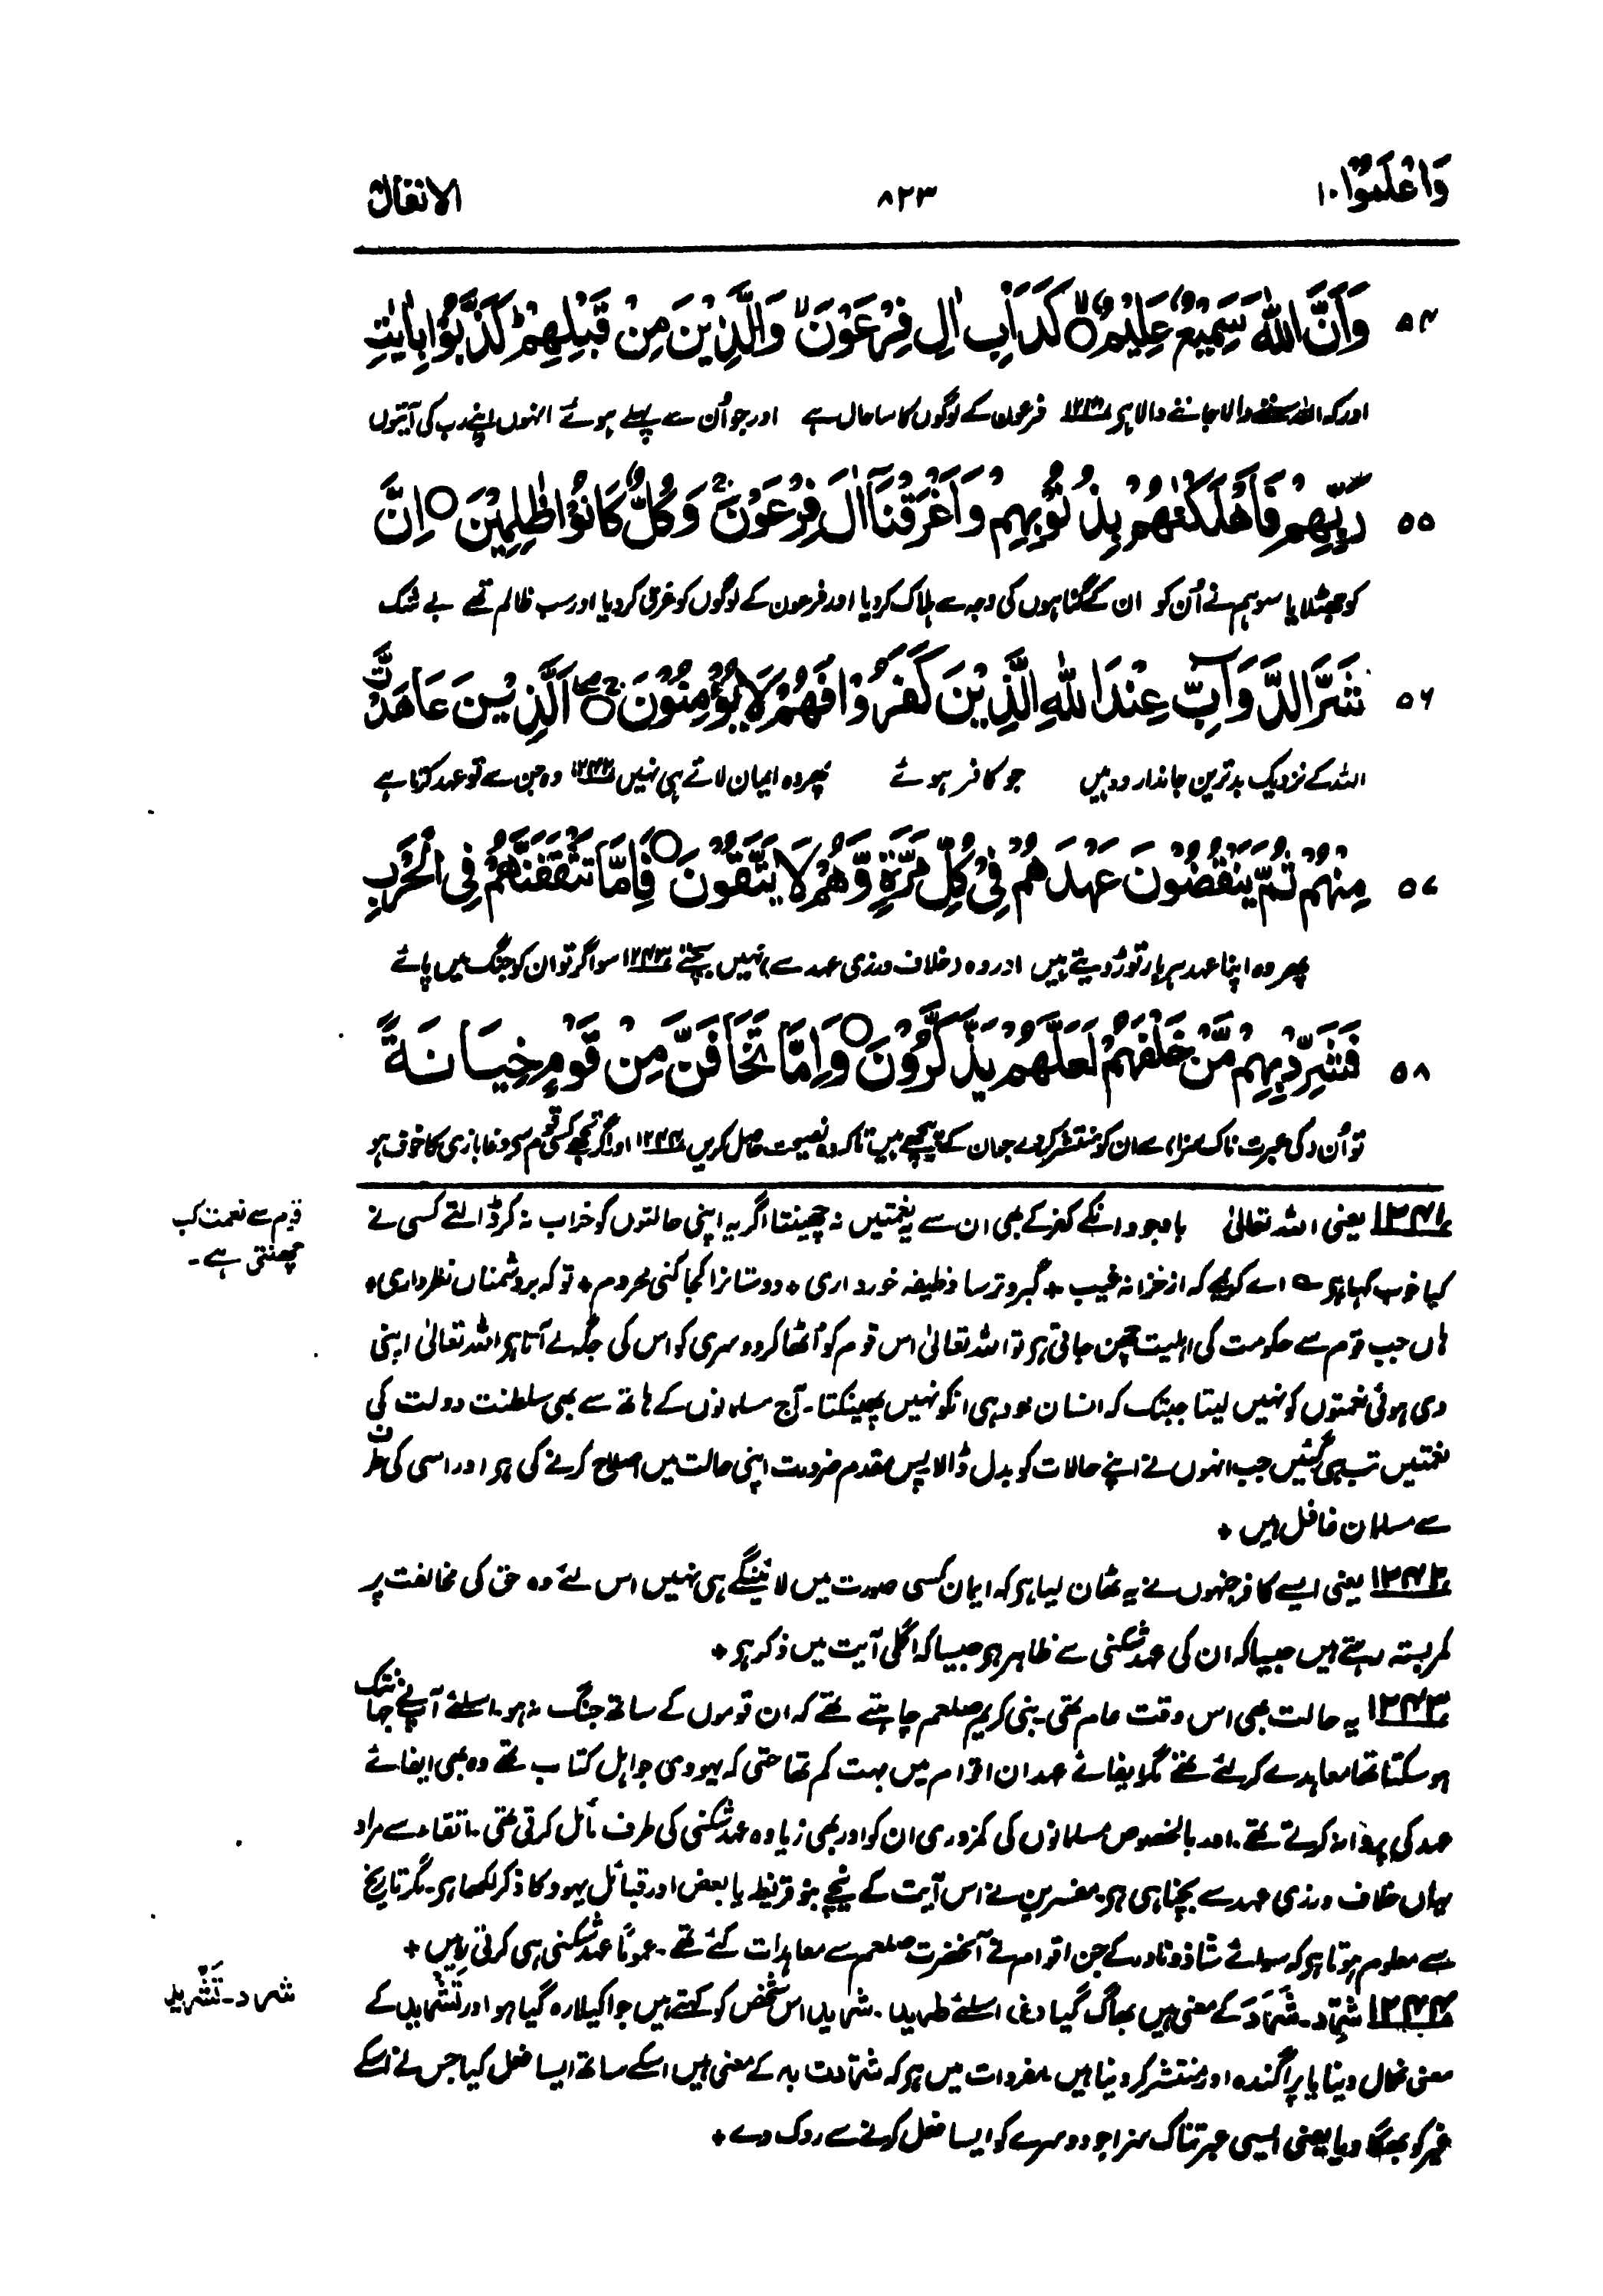 وَاعْلَمُوْا ۱۰
۸۲۳
الانفال
۵۴ وَاَنَّ اللّٰهَ سَمِيْعٌ عَلِيْمٌ ۙ كَدَاْبِ اٰلِ فِرْعَوْنَ ۙ وَالَّذِيْنَ مِنْ قَبْلِهِمْ ؕ كَذَّبُوْا بِاٰيٰتِ
اور کہ اللہ سننے والا جاننے والا ہو ۱۲۴۱ فرعون کے لوگوں کا سا حال ہے اور جو اُن سے پہلے ہوئے انہوں اپنے رب کی آیتوں
۵۵ رَبِّهِمْ فَاَهْلَكْنٰهُمْ بِذُنُوْبِهِمْ وَاَغْرَقْنَاۤ اٰلَ فِرْعَوْنَ ۚ وَكُلٌّ كَانُوْا ظٰلِمِيْنَ ○ اِنَّ
کو جھٹلایا سو ہم نے اُن کو ان کے گناہوں کی وجہ سے ہلاک کردیا اور فرعون کے لوگوں کو غرق کردیا اور سب ظالم تھے بے شک
۵۶ شَرَّ الدَّوَآبِّ عِنْدَ اللّٰهِ الَّذِيْنَ كَفَرُوْا فَهُمْ لَا يُؤْمِنُوْنَ ○ اَلَّذِيْنَ عَاهَدْتَّ
اللہ کے نزدیک بدترین جاندار وہ ہیں جو کافر ہوئے پھر وہ ایمان لاتے ہی نہیں ۱۲۴۲ وہ جن سے تو عہد کرتا ہے
۵۷ مِنْهُمْ ثُمَّ يَنْقُضُوْنَ عَهْدَهُمْ فِيْ كُلِّ مَرَّةٍ وَّهُمْ لَا يَتَّقُوْنَ ○ فَاِمَّا تَثْقَفَنَّهُمْ فِي الْحَرْبِ
پھر وہ اپنا عہد ہر بار توڑ دیتے ہیں اور وہ (خلاف ورزی عہد سے) نہیں بچتے ۱۲۴۳ سو اگر تو ان کو جنگ میں پائے
۵۸ فَشَرِّدْ بِهِمْ مَّنْ خَلْفَهُمْ لَعَلَّهُمْ يَذَّكَّرُوْنَ ○ وَاِمَّا تَخَافَنَّ مِنْ قَوْمٍ خِيَانَةً
تو اُن (کی عبرت ناک سزا) سے ان کو منتشر کردے جو ان کے پیچھے ہیں تاکہ وہ نصیحت حاصل کریں ۱۲۴۴ اور اگر تجھے کسی قوم سے دغا بازی کا خوف ہو
۱۲۴۱ یعنی اللہ تعالیٰ باوجود انکے کفر کے بھی ان سے یہ نعمتیں نہ چھینتا اگر یہ اپنی حالتوں کو خراب نہ کر ڈالتے کسی نے
قوم سے نعمت کب
چھنتی ہے ۔
کیا خوب کہا ہو ؎ اے کریمے کہ از خزانہ غیب ٭ گبر و ترسا وظیفہ خور داری ٭ دوستانرا کجا کنی محروم ٭ تو کہ بر دشمناں نظر داری ٭
ہاں جب قوم سے حکومت کی اہلیت چھن جاتی ہو تو اللہ تعالیٰ اس قوم کو اُٹھا کر دوسری کو اس کی جگہ لے آتا ہو اللہ تعالیٰ اپنی
دی ہوئی نعمتوں کو نہیں لیتا جبتک کہ انسان خود ہی انکو نہیں پھینکتا ۔ آج مسلمانوں کے ہاتھ سے بھی سلطنت دولت کی
نعمتیں تب ہی گئیں جب انہوں نے اپنے حالات کو بدل ڈالا پس مقدم ضرورت اپنی حالت میں اصلاح کرنے کی ہو اور اسی کی طرف
سے مسلمان غافل ہیں ٭
۱۲۴۲ یعنی ایسے کافر جنہوں نے یہ ٹھان لیا ہو کہ ایمان کسی صورت میں لائینگے ہی نہیں اس لئے وہ حق کی مخالفت پر
کمر بستہ رہتے ہیں جیسا کہ ان کی عہد شکنی سے ظاہر ہو جیسا کہ اگلی آیت میں ذکر ہو ٭
۱۲۴۳ یہ حالت بھی اس وقت عام تھی ۔ نبی کریم صلعم چاہتے تھے کہ ان قوموں کے ساتھ جنگ نہ ہو ۔ اسلئے آپ نے جہانتک
ہو سکتا تھا معاہدے کر لئے تھے مگر ایفائے عہد ان اقوام میں بہت کم تھا حتی کہ یہودی جو اہل کتاب تھے وہ بھی ایفائے
عہد کی پروا نہ کرتے تھے ۔ اور بالخصوص مسلمانوں کی کمزوری ان کو اور بھی زیادہ عہد شکنی کی طرف مائل کرتی تھی ۔ اتقاء سے مراد
یہاں خلاف ورزی عہد سے بچنا ہی ہو ۔ مفسرین نے اس آیت کے نیچے بنو قریظہ یا بعض اور قبائل یہود کا ذکر لکھا ہو ۔ مگر تاریخ
سے معلوم ہوتا ہو کہ سوائے شاذ و نادر کے جن اقوام نے آنحضرت صلعم سے معاہدات کئے تھے ۔ عموماً عہد شکنی ہی کرتی رہیں ٭
۱۲۴۴ شَرِّد ۔ شَرَدَ کے معنی ہیں بھاگ گیا (غ) اسلئے طرید ۔ شرید اس شخص کو کہتے ہیں جو اکیلا رہ گیا ہو اور تَشْرِید کے
شرد ۔ تَشْرِید
معنی نکال دینا یا پراگندہ اور منتشر کر دینا ہیں ۔ مفردات میں ہو کہ شرّدت بہ کے معنی ہیں اسکے ساتھ ایسا فعل کیا جس نے اسکے
غیر کو بھگا دیا یعنی ایسی عبرتناک سزا جو دوسرے کو ایسا فعل کرنے سے روک دے ٭